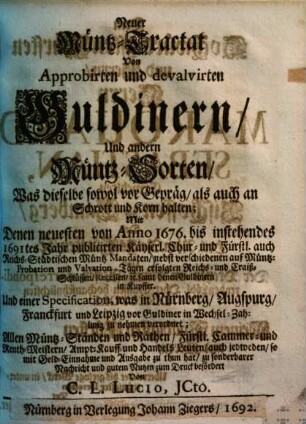 Neuer
Müntz-Tractat
Von
Approbirten und devalvirten
Guldinern/
Und andern
Müntz-Sorten/
Was dieselbe sowol vor Gepräg/ als auch an
Schrott und Korn halten;
Wie
Denen neuesten von Anno 1676. bis instehendes
1691tes Jahr publicirten Käyserl. Chur- und Fürstl. auch
Reichs-Städtischen Müntz Mandaten/ nebst verschiedenen auf Müntz-
Probation und Valvation-Tägen erfolgten Reichs- und Craiß-
Schlüssen/ Recessen/ samt denen Guldinern
in Kupffer.
Und einer Specification, was in Nürnberg/ Augspurg/
Franckfurt und Leipzig vor Guldiner in Wechsel-Zah-
lung zu nehmen verordnet;
Allen Müntz-Ständen und Räthen/ Fürstl. Cammer- und
Renth-Meistern/ Ampt- Kauff und Handels Leuten/ auch jedweden/ so
mit Geld-Einnahme und Ausgabe zu thun hat/ zu sonderbarer
Nachricht und gutem Nutzen zum Druck befördert
Von
C. L. Lucio, JCto.
Nürnberg in Verlegung Johann Ziegers/ 1692.